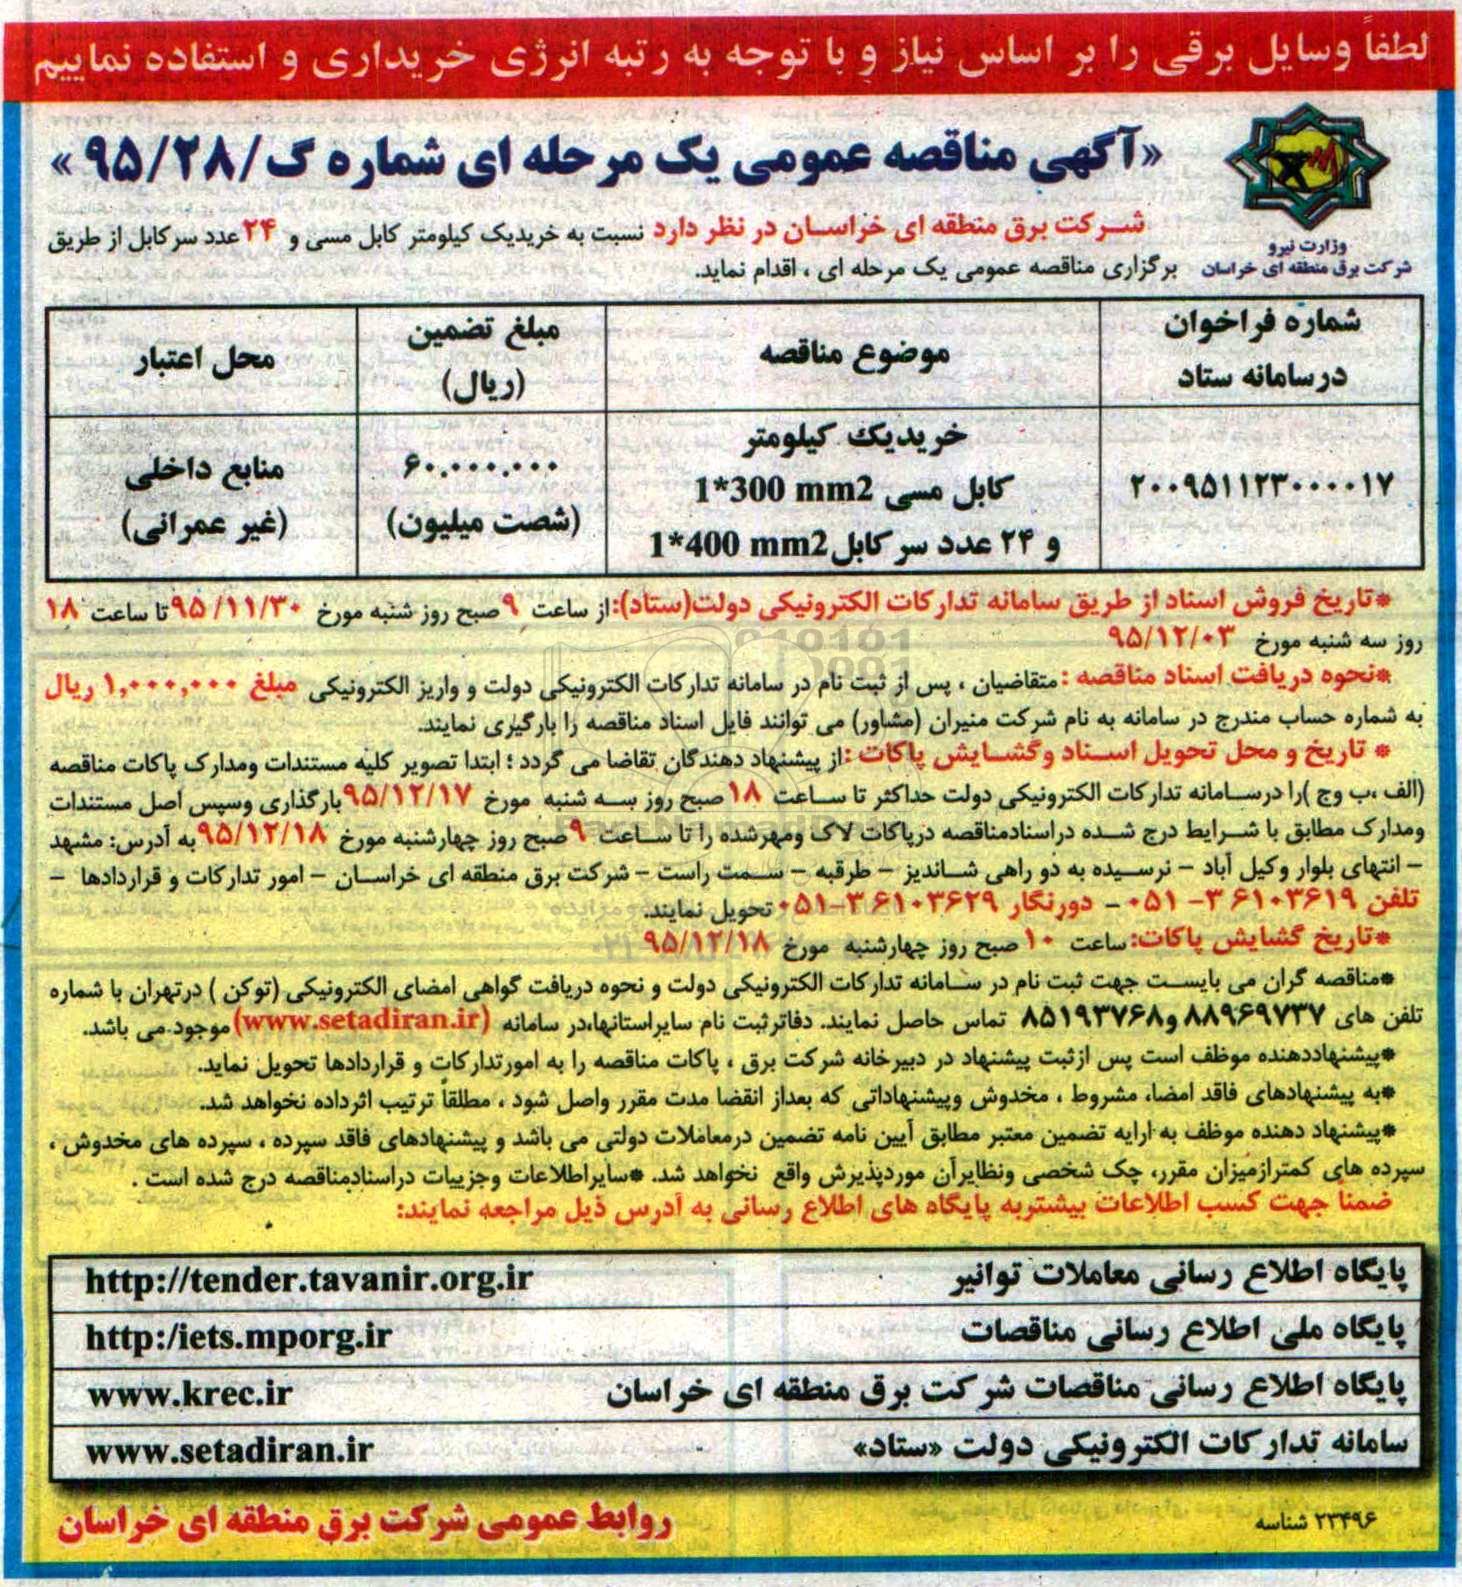 لطفاً وسایل برقی را بر اساس نیاز و با توجه به رتبه انرژی خریداری و استفاده نماییم
«آگهی مناقصه عمومی یک مرحله ای شماره گ/۹۵/۲۸»
وزارت نیرو
شرکت برق منطقه ای خراسان
شرکت برق منطقه ای خراسان در نظر دارد نسبت به خریدیک کیلومتر کابل مسی و ۲۴ عدد سرکابل از طریق
برگزاری مناقصه عمومی یک مرحله ای ، اقدام نماید.
شماره فراخوان درسامانه ستاد
موضوع مناقصه
مبلغ تضمین (ریال)
محل اعتبار
۲۰۰۹۵۱۱۲۳۰۰۰۰۱۷
خریدیک کیلومتر
کابل مسی 1*300 mm2
و ۲۴ عدد سرکابل 1*400 mm2
۶۰.۰۰۰.۰۰۰
(شصت میلیون)
منابع داخلی
(غیر عمرانی)
*تاریخ فروش اسناد از طریق سامانه تدارکات الکترونیکی دولت(ستاد):از ساعت ۹ صبح روز شنبه مورخ ۹۵/۱۱/۳۰ تا ساعت ۱۸
روز سه شنبه مورخ ۹۵/۱۲/۰۳
*نحوه دریافت اسناد مناقصه : متقاضیان ، پس از ثبت نام در سامانه تدارکات الکترونیکی دولت و واریز الکترونیکی مبلغ ۱,۰۰۰,۰۰۰ ریال
به شماره حساب مندرج در سامانه به نام شرکت منیران (مشاور) می توانند فایل اسناد مناقصه را بارگیری نمایند.
* تاریخ و محل تحویل اسناد وگشایش پاکات :از پیشنهاد دهندگان تقاضا می گردد ؛ ابتدا تصویر کلیه مستندات ومدارک پاکات مناقصه
(الف ،ب وج )را درسامانه تدارکات الکترونیکی دولت حداکثر تا ساعت ۱۸ صبح روز سه شنبه مورخ ۹۵/۱۲/۱۷ بارگذاری وسپس اصل مستندات
ومدارک مطابق با شرایط درج شده دراسنادمناقصه درپاکات لاک ومهرشده را تا ساعت ۹ صبح روز چهارشنبه مورخ ۹۵/۱۲/۱۸ به آدرس: مشهد
– انتهای بلوار وکیل آباد – نرسیده به دو راهی شاندیز – طرقبه – سمت راست – شرکت برق منطقه ای خراسان – امور تدارکات و قراردادها –
تلفن ۳۶۱۰۳۶۱۹-۰۵۱ – دورنگار ۳۶۱۰۳۶۲۹-۰۵۱ تحویل نمایند.
*تاریخ گشایش پاکات: ساعت ۱۰ صبح روز چهارشنبه مورخ ۹۵/۱۲/۱۸
*مناقصه گران می بایست جهت ثبت نام در سامانه تدارکات الکترونیکی دولت و نحوه دریافت گواهی امضای الکترونیکی (توکن ) درتهران با شماره
تلفن های ۸۸۹۶۹۷۳۷ و۸۵۱۹۳۷۶۸ تماس حاصل نمایند. دفاترثبت نام سایراستانها،در سامانه (www.setadiran.ir) موجود می باشد.
*پیشنهاددهنده موظف است پس ازثبت پیشنهاد در دبیرخانه شرکت برق ، پاکات مناقصه را به امورتدارکات و قراردادها تحویل نماید.
*به پیشنهادهای فاقد امضا، مشروط ، مخدوش وپیشنهاداتی که بعداز انقضا مدت مقرر واصل شود ، مطلقاً ترتیب اثرداده نخواهد شد.
*پیشنهاد دهنده موظف به ارایه تضمین معتبر مطابق آیین نامه تضمین درمعاملات دولتی می باشد و پیشنهادهای فاقد سپرده ، سپرده های مخدوش ،
سپرده های کمترازمیزان مقرر، چک شخصی ونظایرآن موردپذیرش واقع نخواهد شد. *سایراطلاعات وجزییات دراسنادمناقصه درج شده است .
ضمناً جهت کسب اطلاعات بیشتربه پایگاه های اطلاع رسانی به آدرس ذیل مراجعه نمایند:
پایگاه اطلاع رسانی معاملات توانیر http://tender.tavanir.org.ir
پایگاه ملی اطلاع رسانی مناقصات http:/iets.mporg.ir
پایگاه اطلاع رسانی مناقصات شرکت برق منطقه ای خراسان www.krec.ir
سامانه تدارکات الکترونیکی دولت «ستاد» www.setadiran.ir
۲۳۴۹۶ شناسه
روابط عمومی شرکت برق منطقه ای خراسان